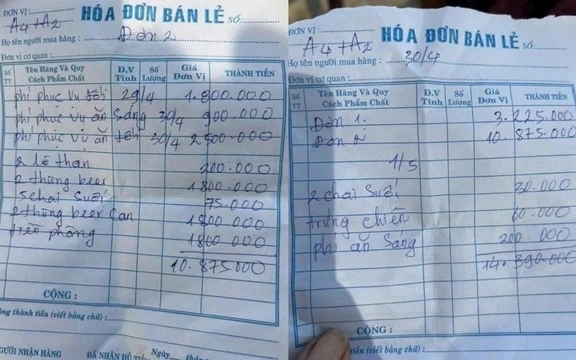 ĐƠN VỊ:
A4+A2
HÓA ĐƠN BÁN LẺ SỐ:
Họ tên người mua hàng : Đơn 2
Đơn vị cơ quan :
Số TT Tên Hàng Và Quy Cách Phẩm Chất Đ.V Tính Số Lượng Giá Đơn Vị THÀNH TIỀN
phí phục vụ tối 29/4 1.800.000
phí phục vụ ăn sáng 30/4 900.000
phí phục vụ ăn tối 30/4 2500.000
2 lò than 200.000
2 thùng beer 1800.000
5 chai suối 75.000
2 thùng beer can 1800.000
tiền phòng 1800.000
10.875.000
CỘNG :
ộng thành tiền (viết bằng chữ) :
Ngày tháng
GƯỜI NHẬN HÀNG ĐÃ NHẬN ĐỦ
ĐƠN VỊ:
A4+A2
HÓA ĐƠN BÁN LẺ SỐ:
Họ tên người mua hàng : 30/4
Đơn vị cơ quan :
Số TT Tên Hàng Và Quy Cách Phẩm Chất Đ.V Tính Số Lượng Giá Đơn Vị THÀNH TIỀN
Đơn 1. 3.225.000
Đơn 2 10.875.000
1/5
2 chai suối 30.000
trứng chiên 60.000
phí ăn sáng 200.000
14.390.000
CỘNG :
thành tiền (viết bằng chữ) :